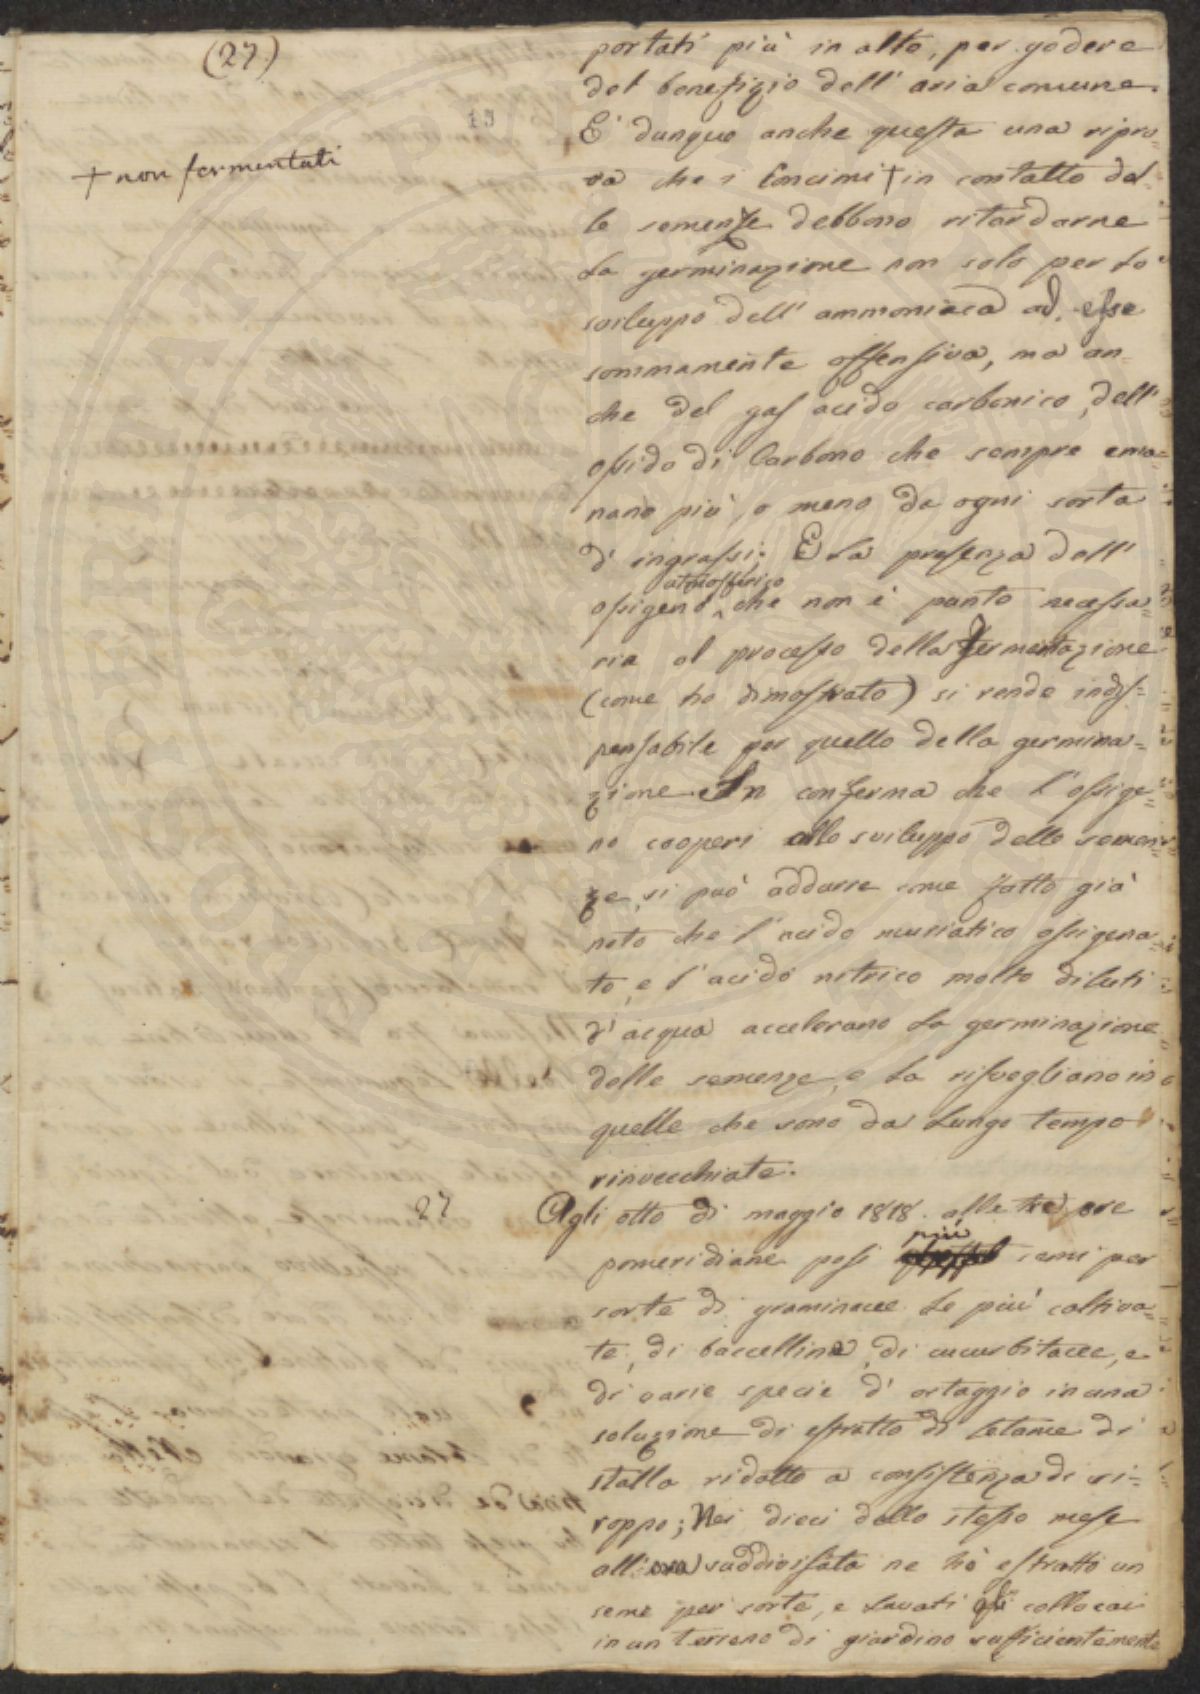 (27)
19
+ non fermentati
portati più in alto, per godere
del benefizio dell' aria comune.
E' dunque anche questa una ripro=
va che i Concimi † in contatto del=
le semenze debbono ritardarne
la germinazione non solo per lo
sviluppo dell' ammoniaca ad esse
sommamente offensiva, ma an=
che del gas acido carbonico, dell'
ossido di Carbono che sempre ema=
nano più, o meno da ogni sorta
d' ingrassi; E la presenza dell'
atmosferico
ossigeno, che non è punto necessa=
ria al processo della fermentazione
(come ho dimostrato) si rende indis=
pensabile per quello della germina=
zione In conferma che l'ossige=
no cooperi allo sviluppo delle semen=
ze, si può addurre come fatto già
noto che l'acido muriatico ossigena=
to, e l'acido nitrico molto diluti
d'acqua accelerano la germinazione
delle semenze, e la risvegliano in
quelle che sono da lungo tempo
rinvecchiate.
27 Agli otto di maggio 1818. alle tre ore
più
pomeridiane posi semi per
sorte di graminacee le più coltiva=
te, di baccelline, di cucurbitacee, e
di varie specie d' ortaggio in una
soluzione di estratto di letame di
stalla ridotto a consistenza di si=
roppo; Nei dieci dello stesso mese
all'ora suddivisata ne hò estratto un
seme per sorte, e lavati gli collocai
in un terreno di giardino sufficientemente